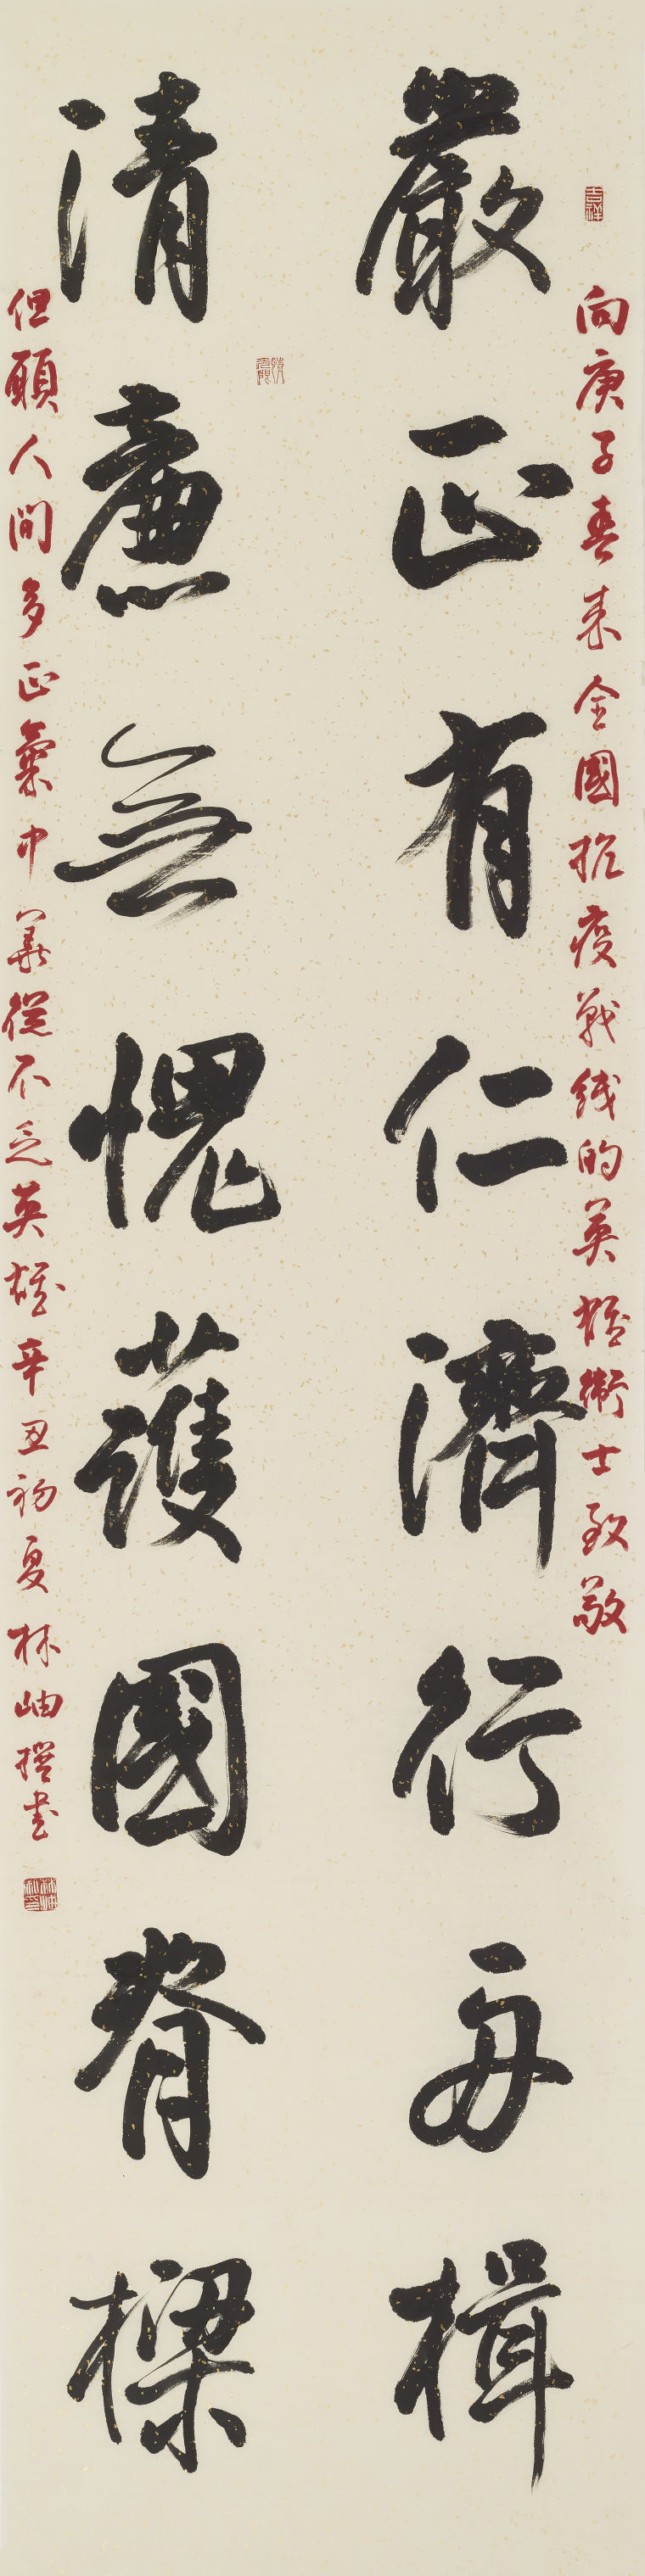 向庚子春来全國抗疫戰线的英雄衛士致敬
嚴正有仁濟行舟楫
清廉無愧護國脊樑
但願人間多正氣中華從不乏英雄辛丑初夏林岫撰書
吉祥